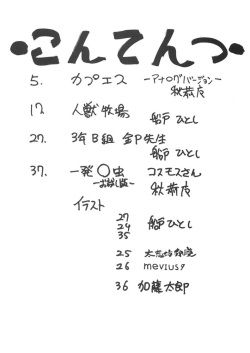 ・こんてんつ・
5. カプエス -アナログバージョン-
秋葉凪
17. 人獣牧場
船戸ひとし
27. 3年B組 金P先生
船戸 ひとし
37. 一発〇虫 コスモスさん
-お試し版- 秋葉凪
イラスト
27
29
35
船戸 ひとし
25
26 mevius9
36 加藤太郎